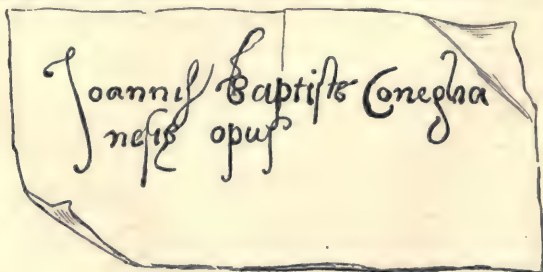 Joannis Baptiste Coneglia
nesis opus